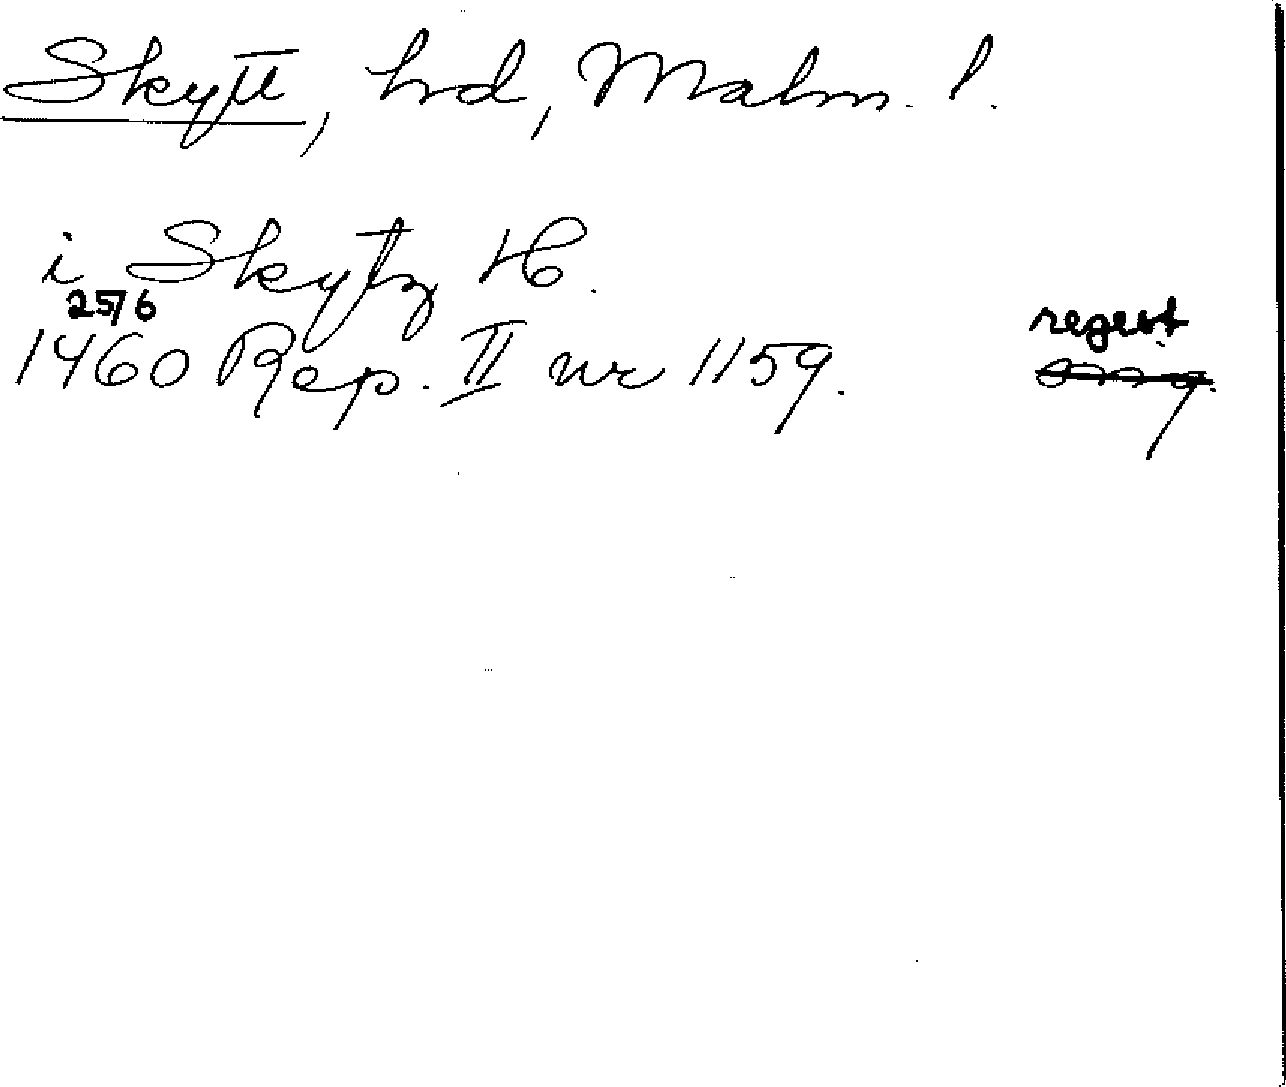 Skytt, hd, Malm. l.
i Skytz H.
25/6
1460 Rep. II nr 1159.
regest